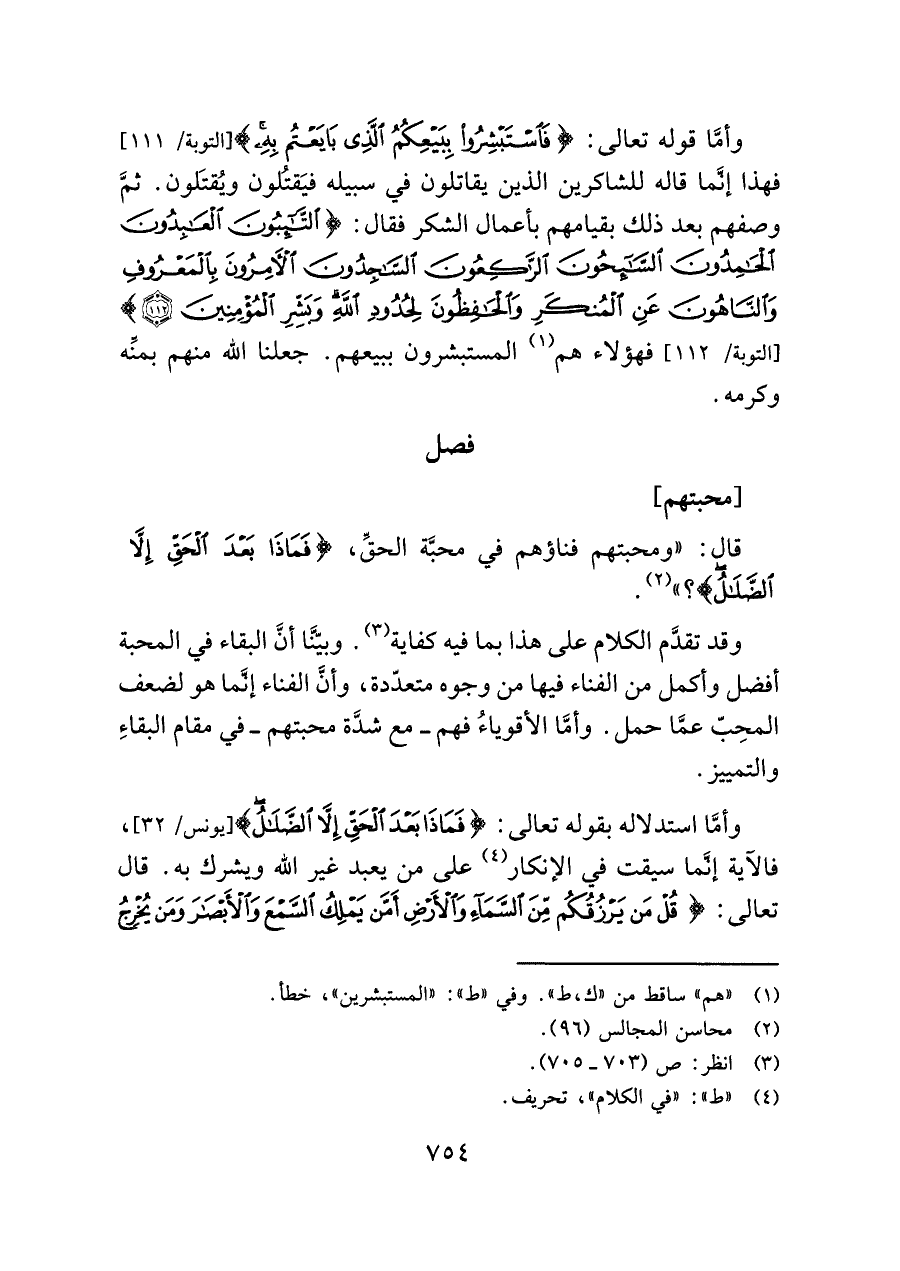 وأمَّا قوله تعالى: ﴿ فَٱسۡتَبۡشِرُواْ بِبَيۡعِكُمُ ٱلَّذِي بَايَعۡتُم بِهِۦۚ ﴾ [التوبة/ ١١١]
فهذا إنَّما قاله للشاكرين الذين يقاتلون في سبيله فيَقتُلون ويُقتَلون. ثمَّ
وصفهم بعد ذلك بقيامهم بأعمال الشكر فقال: ﴿ ٱلتَّٰٓئِبُونَ ٱلۡعَٰبِدُونَ
ٱلۡحَٰمِدُونَ ٱلسَّٰٓئِحُونَ ٱلرَّٰكِعُونَ ٱلسَّٰجِدُونَ ٱلۡأٓمِرُونَ بِٱلۡمَعۡرُوفِ
وَٱلنَّاهُونَ عَنِ ٱلۡمُنكَرِ وَٱلۡحَٰفِظُونَ لِحُدُودِ ٱللَّهِۗ وَبَشِّرِ ٱلۡمُؤۡمِنِينَ ١١٢ ﴾
[التوبة/ ١١٢] فهؤلاء هم(١) المستبشرون ببيعهم. جعلنا الله منهم بمنِّه
وكرمه.
فصل
[محبتهم]
قال: «ومحبتهم فناؤهم في محبَّة الحقِّ، ﴿ فَمَاذَا بَعۡدَ ٱلۡحَقِّ إِلَّا
ٱلضَّلَٰلُۖ ﴾؟»(٢).
وقد تقدَّم الكلام على هذا بما فيه كفاية(٣). وبيَّنَّا أنَّ البقاء في المحبة
أفضل وأكمل من الفناء فيها من وجوه متعدّدة، وأنَّ الفناء إنَّما هو لضعف
المحِبّ عمَّا حمل. وأمَّا الأقوياءُ فهم ـ مع شدَّة محبتهم ـ في مقام البقاءِ
والتمييز.
وأمَّا استدلاله بقوله تعالى: ﴿ فَمَاذَا بَعۡدَ ٱلۡحَقِّ إِلَّا ٱلضَّلَٰلُۖ ﴾ [يونس/ ٣٢]،
فالآية إنَّما سيقت في الإنكار(٤) على من يعبد غير الله ويشرك به. قال
تعالى: ﴿ قُلۡ مَن يَرۡزُقُكُم مِّنَ ٱلسَّمَآءِ وَٱلۡأَرۡضِ أَمَّن يَمۡلِكُ ٱلسَّمۡعَ وَٱلۡأَبۡصَٰرَ وَمَن يُخۡرِجُ
(١) «هم» ساقط من «ك،ط». وفي «ط»: «المستبشرين»، خطأ.
(٢) محاسن المجالس (٩٦).
(٣) انظر: ص (٧٠٣ ـ ٧٠٥).
(٤) «ط»: «في الكلام»، تحريف.
٧٥٤